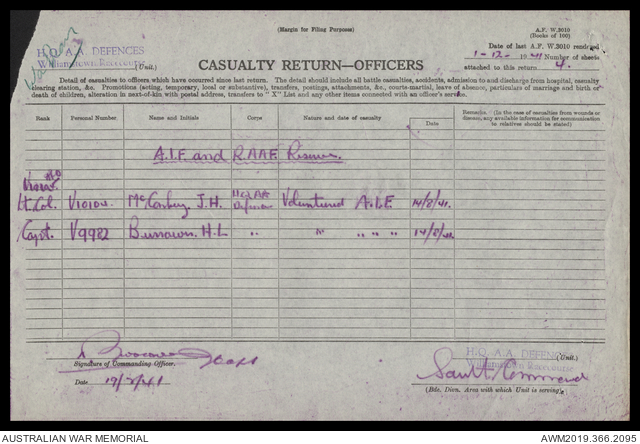 (Margin for Filing Purposes)
A.F. W.3010
(Books of 100)
H.Q. A.A. DEFENCES
Williamstown Racecourse (Unit.)
CASUALTY RETURN—OFFICERS
Date of last A.F. W.3010 rendered
1-12-1941 Number of sheets
attached to this return 4.
Detail of casualties to officers which have occurred since last return. The detail should include all battle casualties, accidents, admission to and discharge from hospital, casualty
clearing station, &c. Promotions (acting, temporary, local or substantive), transfers, postings, attachments, &c., courts-martial, leave of absence, particulars of marriage and birth or
death of children, alteration in next-of-kin with postal address, transfers to "X" List and any other items connected with an officer's service.
Rank Personal Number Name and Initials Corps Nature and date of casualty Date Remarks. (In the case of casualties from wounds or disease, any available information for communication to relatives should be stated)
A.I.F. and R.A.A.F. Reserve.
Lt. Col. V10104 J.H. H.Q. A.A. Defences Volunteered A.I.F. 14/8/41.
Capt. V9982 H.L. " " " " " 14/8/41.
Capt
Signature of Commanding Officer.
Date 19/ /41
H.Q. A.A. DEFENCES (Unit.)
Williamstown Racecourse
South Command
(Bde. Divn. Area with which Unit is serving)
AUSTRALIAN WAR MEMORIAL
AWM2019.366.2095